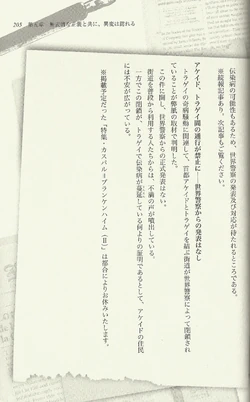 205 第九章 無　　な正義と共に、異変は訪れる
伝染病の可能性もあるため、世界警察の発表及び対応が待たれるところである。
※続報記事あり、次記事もご覧ください。
アケイド、トラゲイ間の通行が禁止に──世界警察からの発表はなし
トラゲイの奇病騒動に関連して、首都アケイドとトラゲイを結ぶ街道が世界警察によって閉鎖され
ていることが弊紙の取材で判明した。
この件に関し、世界警察からの正式発表はない。
街道を普段から利用する人たちからは、不満の声が噴出している。
一方でこの閉鎖が、トラゲイで伝染病が蔓延している何よりの証明であるとして、アケイドの住民
には不安が広がっている。
※掲載予定だった「特集・カスパール=グランケンハイム（Ⅱ）」は都合によりお休みいたします。